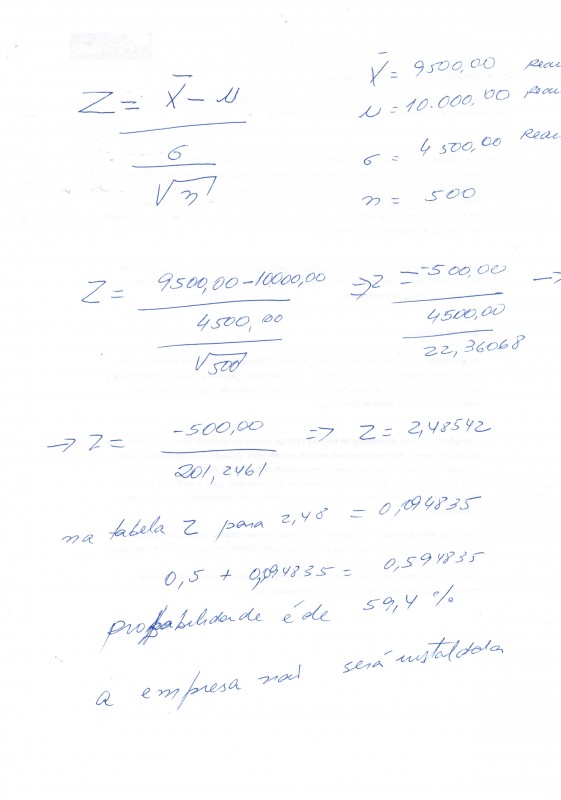 Z = X̄ - μ / σ / √n
X̄ = 9500,00 reai
μ = 10.000,00 reai
σ = 4500,00 reai
n = 500
Z = 9500,00 - 10000,00 / 4500,00 / √500 => Z = -500,00 / 4500,00 / 22,36068 →
→ Z = -500,00 / 201,2461 => Z = 2,48542
na tabela Z para 2,48 = 0,094835
0,5 + 0,094835 = 0,594835
probabilidade é de 59,4 %
a empresa não será instalada